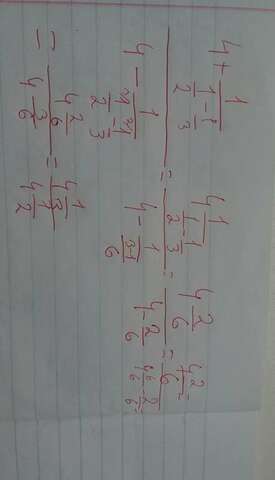 4+1/(1/2-1/3) / 4-1/(1/2-1/3) = 4 1/(1/2-1/3) / 4-1/(3-1/6) = 4 2/6 / 4-2/6 =
= 4 2/6 / 4 3/6 = 4 1/3 / 4 1/2